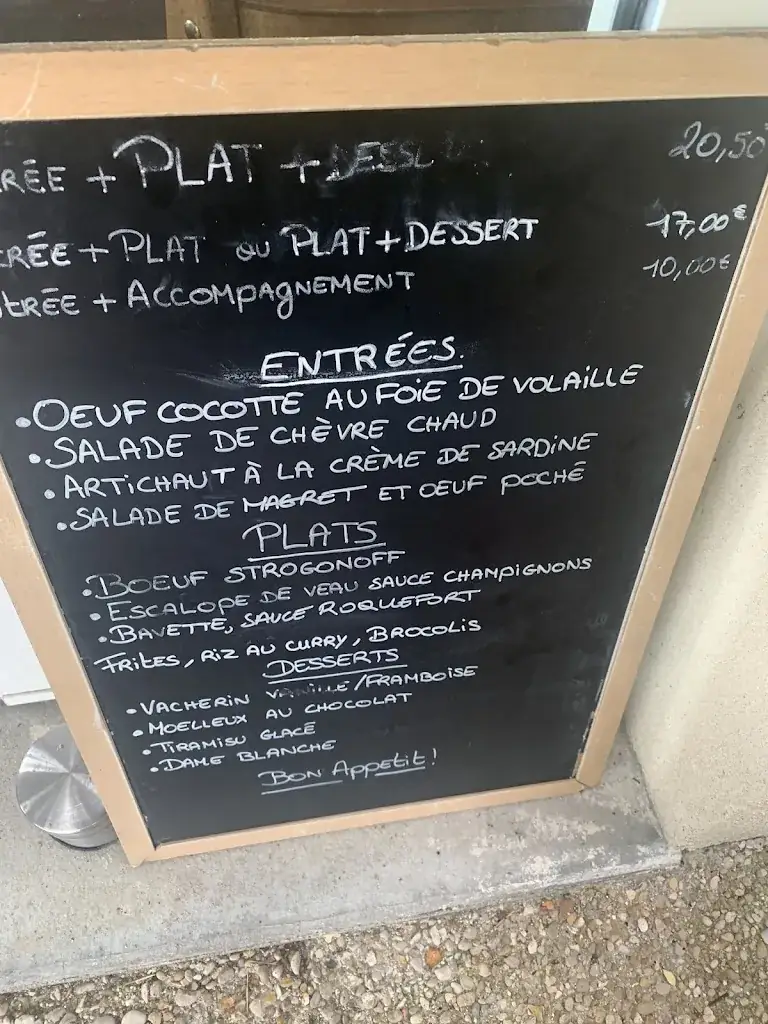 RÉE + PLAT + DESS 20,50
RÉE + PLAT OU PLAT + DESSERT 17,00€
TRÉE + ACCOMPAGNEMENT 10,00€
ENTRÉES.
• OEUF COCOTTE AU FOIE DE VOLAILLE
• SALADE DE CHÈVRE CHAUD
• ARTICHAUT À LA CRÈME DE SARDINE
• SALADE DE MAGRET ET OEUF POCHÉ
PLATS
• BOEUF STROGONOFF
• ESCALOPE DE VEAU SAUCE CHAMPIGNONS
• BAVETTE, SAUCE ROQUEFORT
FRITES, RIZ AU CURRY, BROCOLIS
DESSERTS
• VACHERIN VANILLE/FRAMBOISE
• MOELLEUX AU CHOCOLAT
• TIRAMISU GLACÉ
• DAME BLANCHE
BON APPETIT!